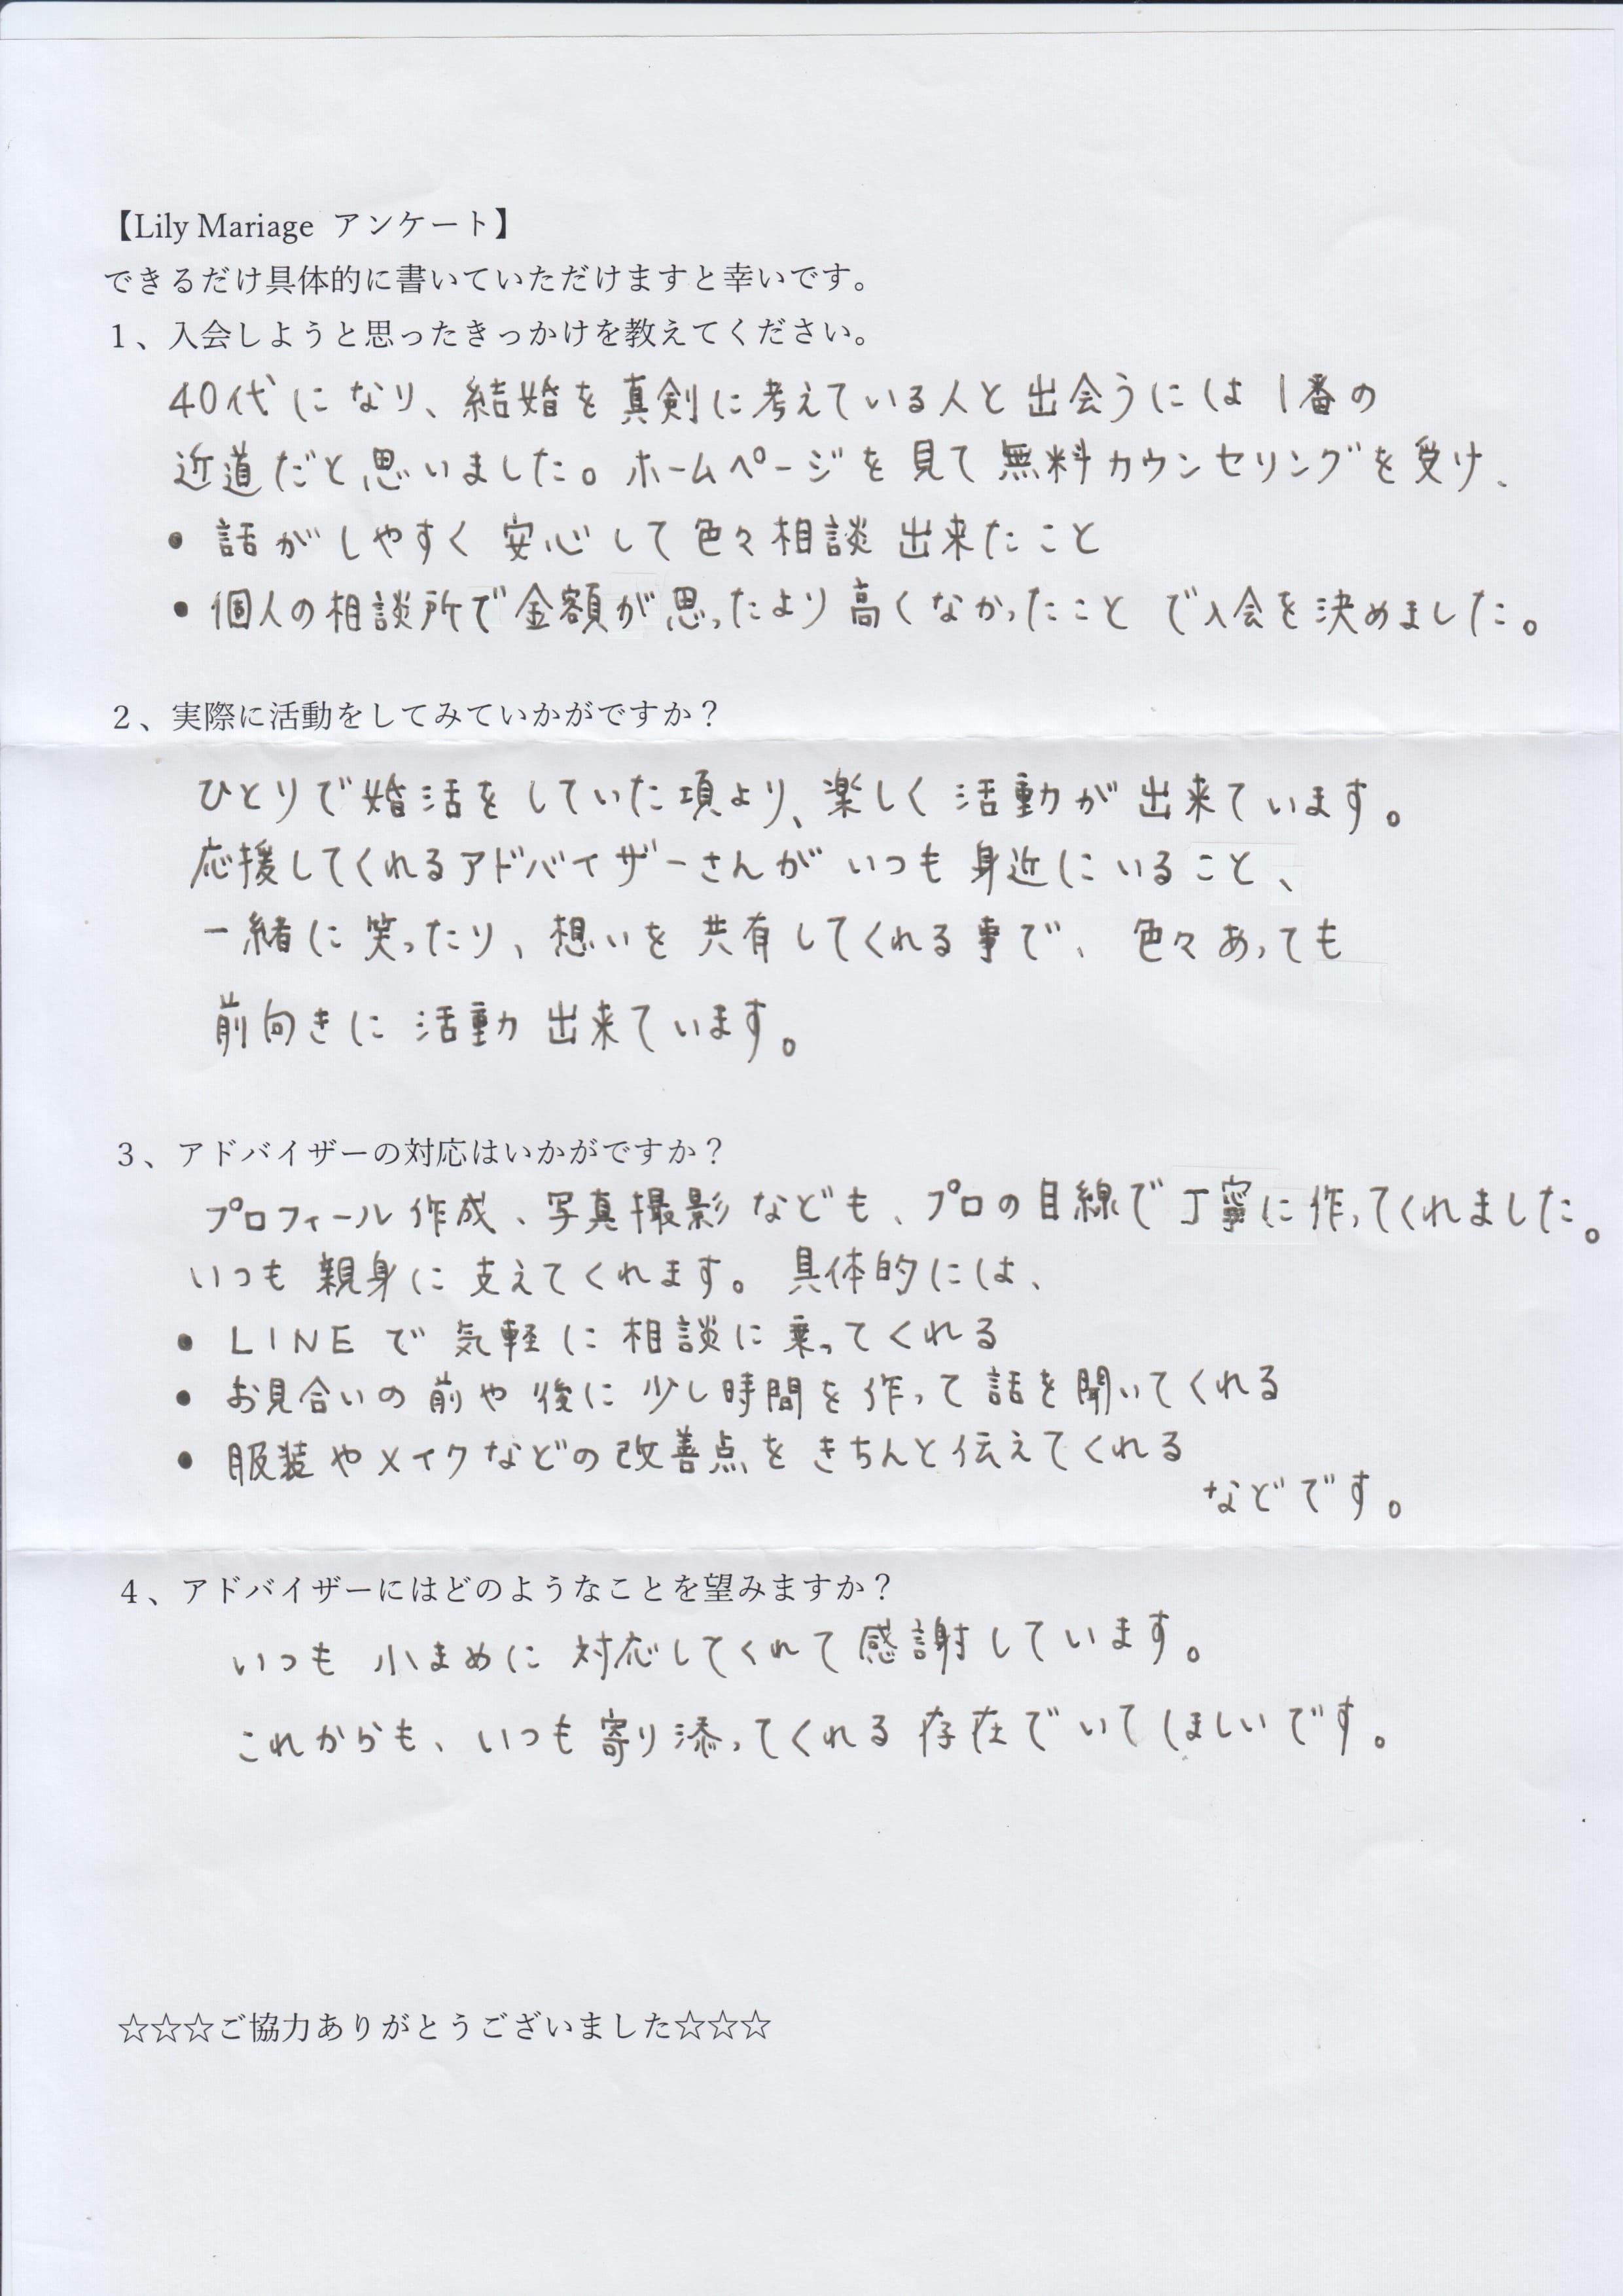 【Lily Mariage アンケート】
できるだけ具体的に書いていただけますと幸いです。
１、入会しようと思ったきっかけを教えてください。
40代になり、結婚を真剣に考えている人と出会うには1番の
近道だと思いました。ホームページを見て無料カウンセリングを受け、
・話がしやすく安心して色々相談出来たこと
・個人の相談所で金額が思ったより高くなかったことで入会を決めました。
２、実際に活動をしてみていかがですか？
ひとりで婚活をしていた頃より、楽しく活動が出来ています。
応援してくれるアドバイザーさんがいつも身近にいること、
一緒に笑ったり、想いを共有してくれる事で、色々あっても
前向きに活動出来ています。
３、アドバイザーの対応はいかがですか？
プロフィール作成、写真撮影なども、プロの目線で丁寧に作ってくれました。
いつも親身に支えてくれます。具体的には、
・LINEで気軽に相談に乗ってくれる
・お見合いの前や後に少し時間を作って話を聞いてくれる
・服装やメイクなどの改善点をきちんと伝えてくれる
などです。
４、アドバイザーにはどのようなことを望みますか？
いつも小まめに対応してくれて感謝しています。
これからも、いつも寄り添ってくれる存在でいてほしいです。
☆☆☆ご協力ありがとうございました☆☆☆